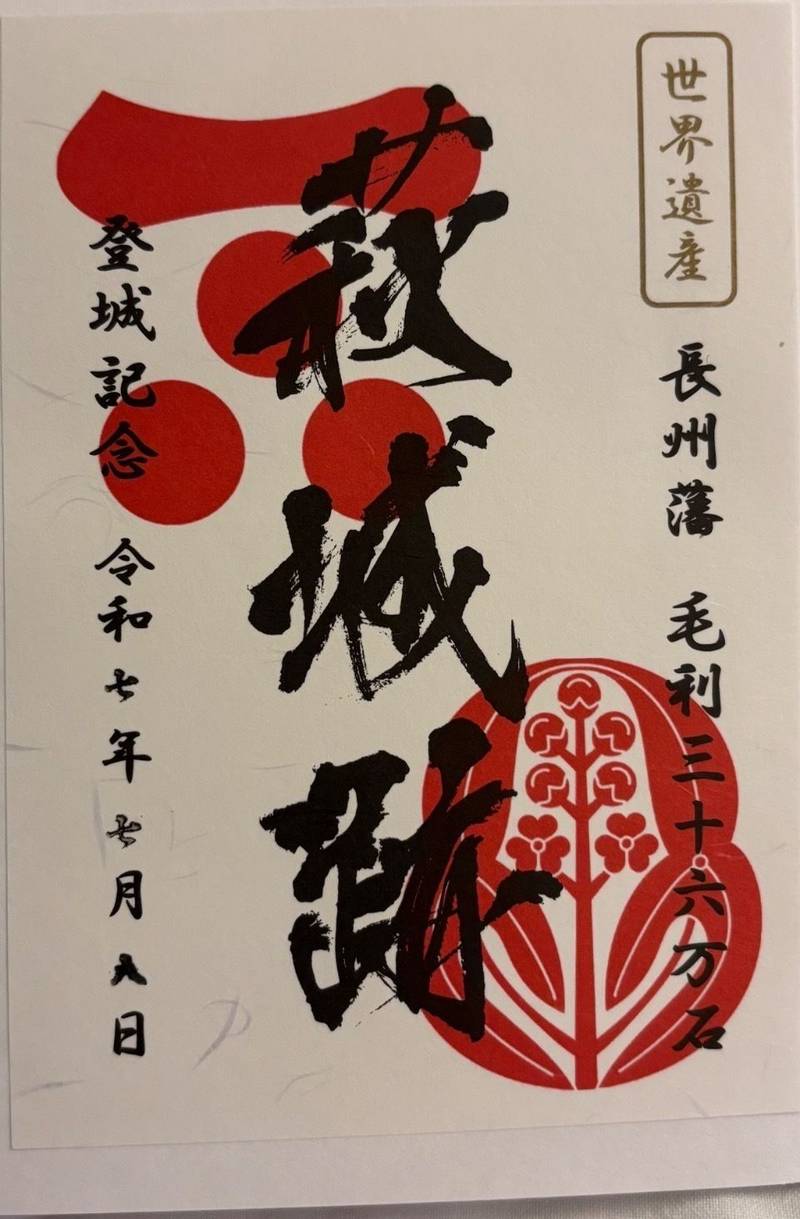 世界遺産
長州藩 毛利三十六万石
萩城跡
登城記念 令和七年七月九日